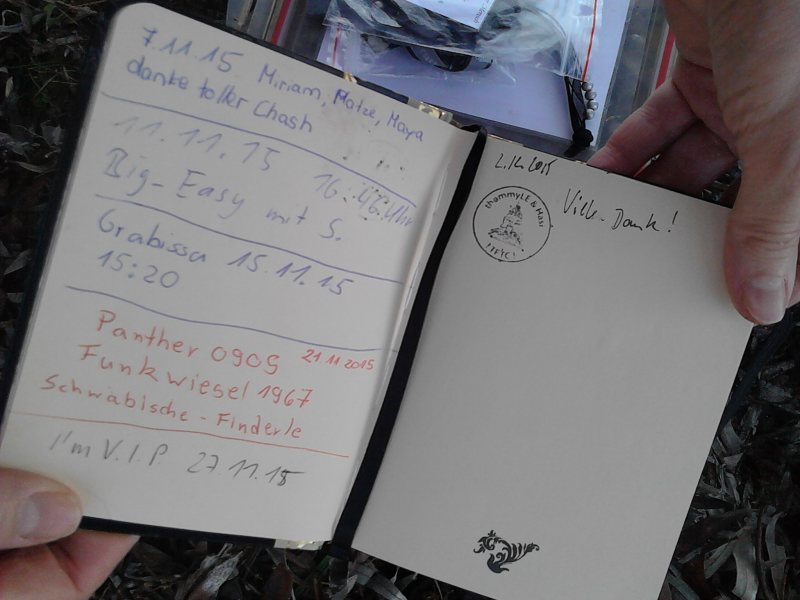 7.11.15 Miriam, Matze, Maya
danke toller Chash
11.11.15 16:46 Uhr
Big-Easy mit S.
Grabissa 15.11.15
15:20
Panther 0909 21.11.2015
Funkwiesel 1967
Schwäbische-Finderle
I'm V.I.P. 27.11.15
2.12.2015
thommyLE & Hasi
TFTC!
Dank!